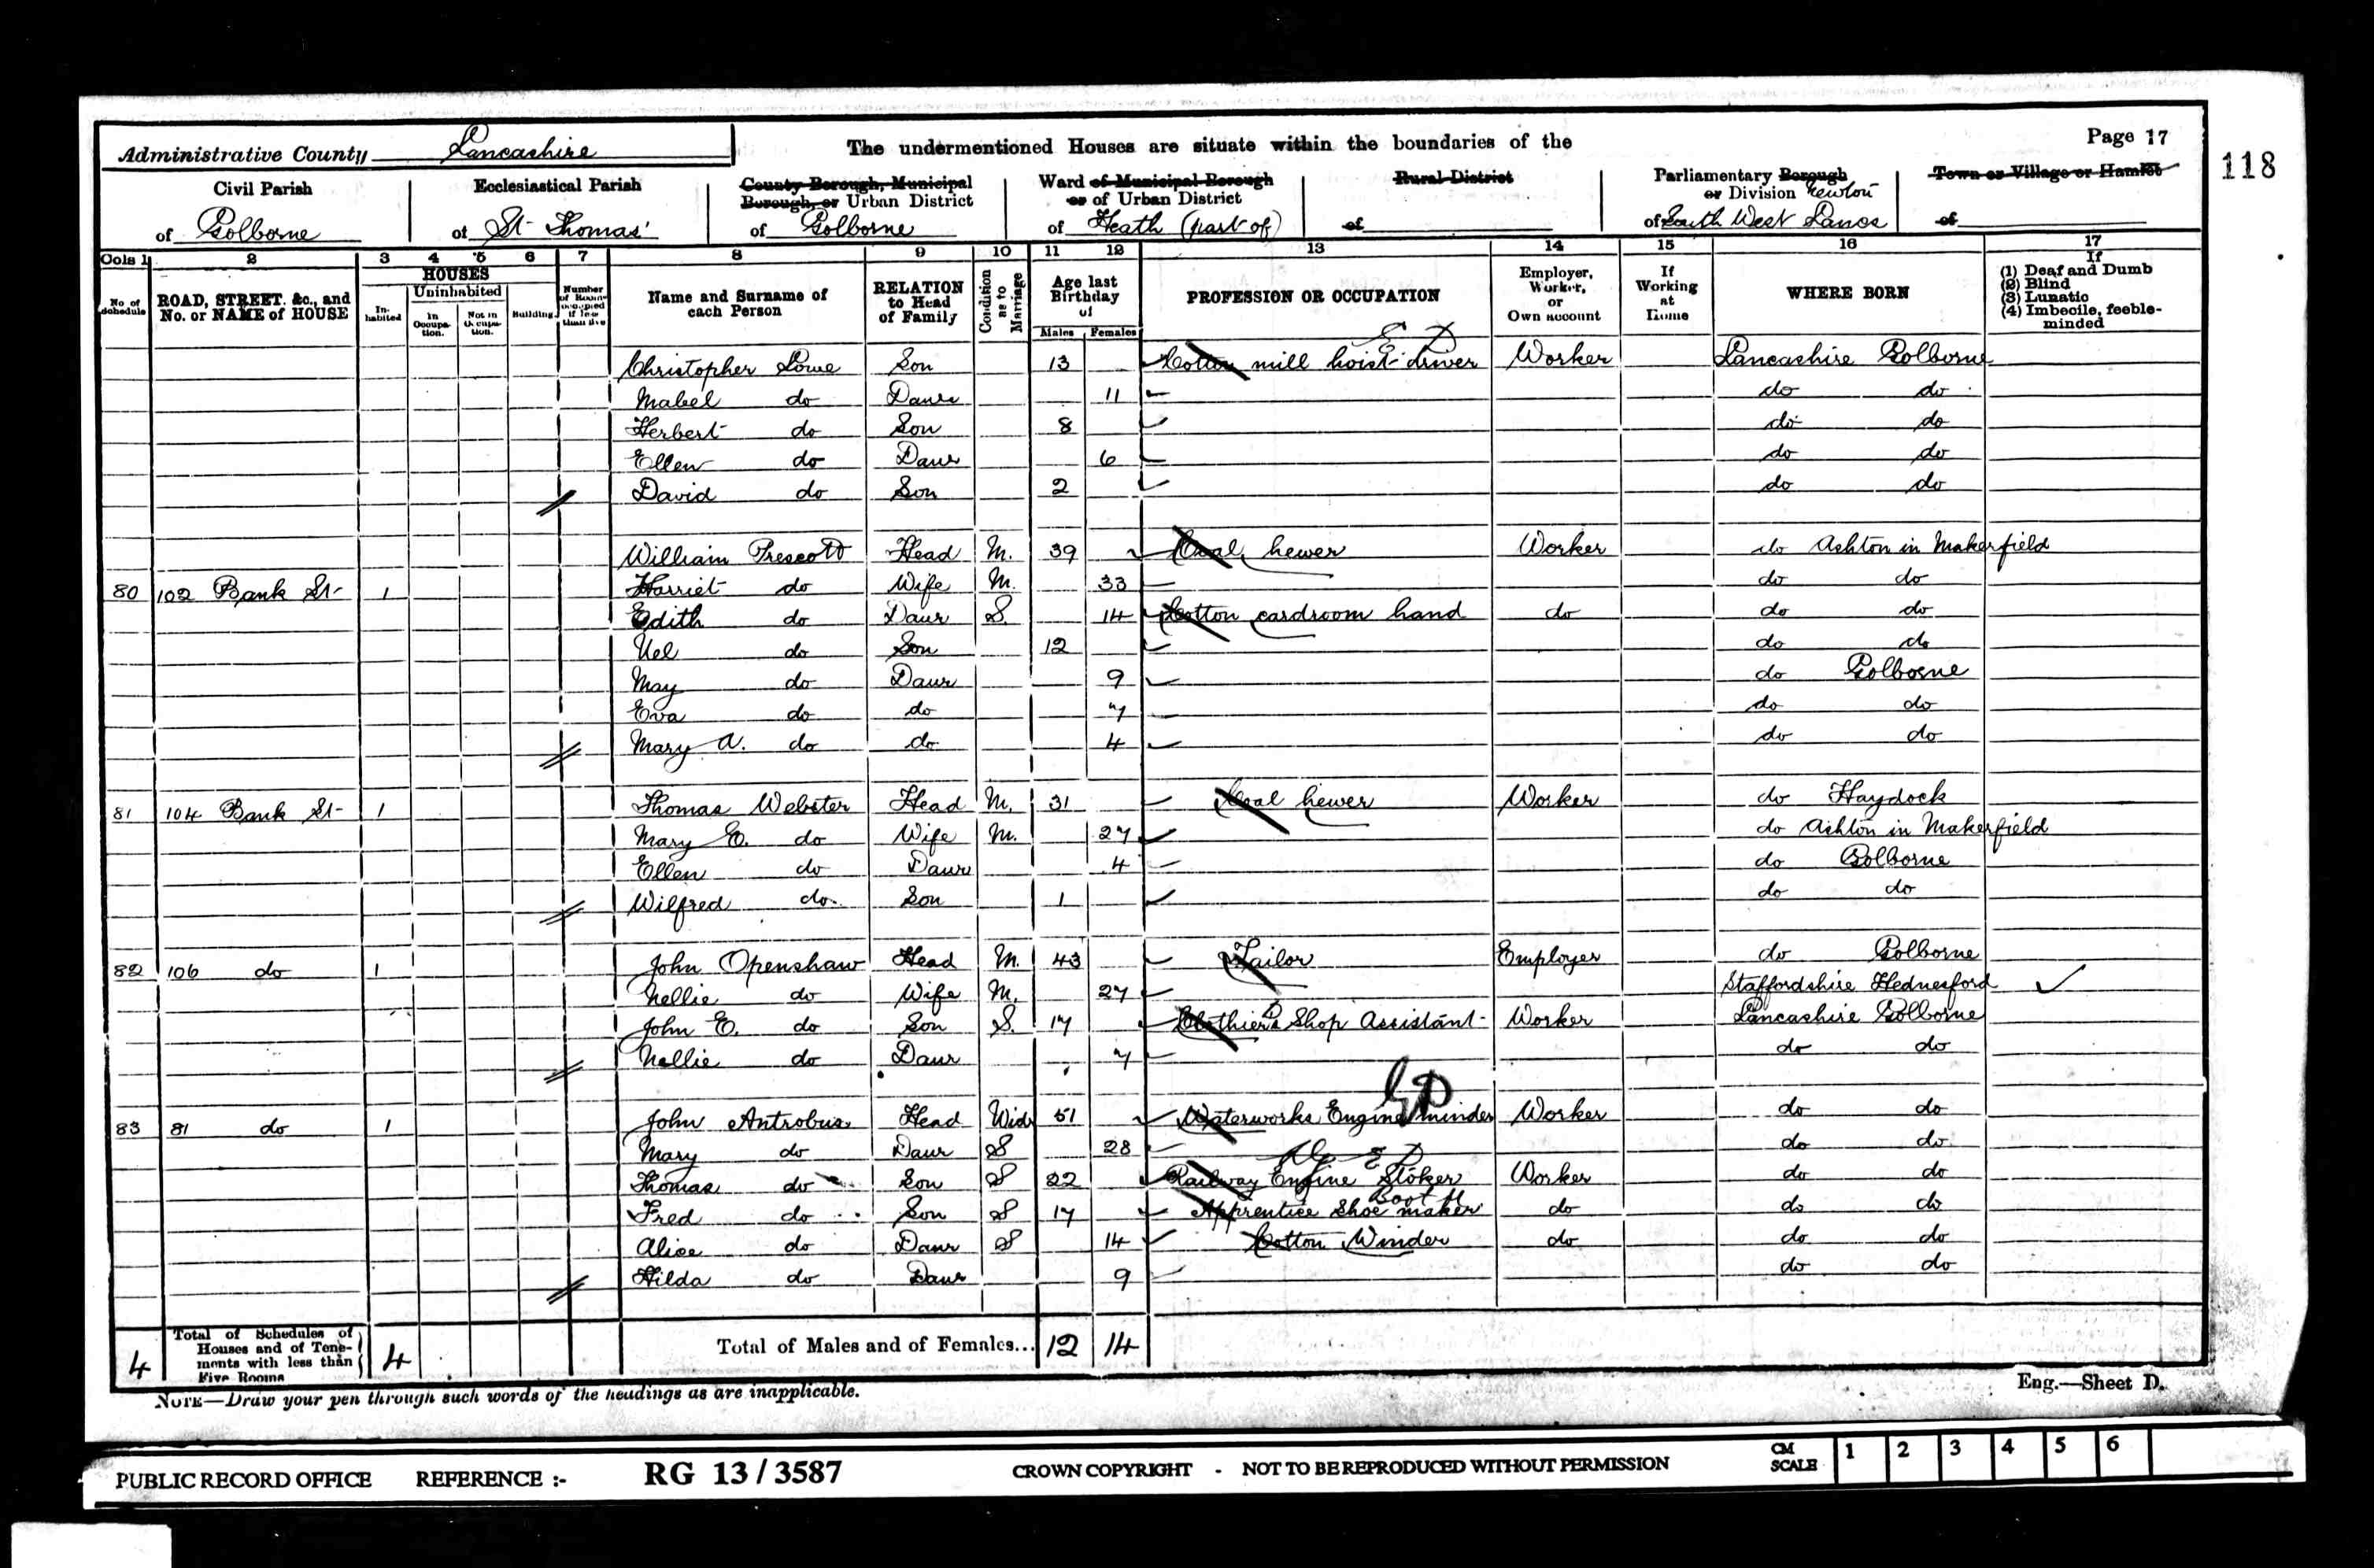 Page 17
118
Administrative County Lancashire
The undermentioned Houses are situate within the boundaries of the
Civil Parish of Golborne
Ecclesiastical Parish of St Thomas'
County Borough, Municipal Borough, or Urban District of Golborne
Ward of Municipal Borough or of Urban District of Heath (part of)
Rural District of
Parliamentary Borough or Division Newton of South West Lancs
Town or Village or Hamlet of
Cols 1 2 3 4 5 6 7 8 9 10 11 12 13 14 15 16 17
No of Schedule
ROAD, STREET, &c., and No. or NAME of HOUSE
HOUSES
In-habited
Uninhabited
In Occupa-tion.
Not in Occupa-tion.
Building
Number of Rooms occupied if less than five
Name and Surname of each Person
RELATION to Head of Family
Condition as to Marriage
Age last Birthday of
Males Females
PROFESSION OR OCCUPATION
Employer, Worker, or Own account
If Working at Home
WHERE BORN
If (1) Deaf and Dumb (2) Blind (3) Lunatic (4) Imbecile, feeble-minded
Christopher Lowe Son 13 Cotton mill hoist driver Worker Lancashire Golborne
Mabel do Daur 11 do do
Herbert do Son 8 do do
Ellen do Daur 6 do do
David do Son 2 do do
William Prescott Head M. 39 Coal hewer Worker do Ashton in Makerfield
80 102 Bank St 1 Harriet do Wife M 33 do do
Edith do Daur S. 14 Cotton cardroom hand do do do
Uel do Son 12 do do
May do Daur 9 do Golborne
Eva do do 7 do do
Mary A. do do 4 do do
81 104 Bank St 1 Thomas Webster Head M. 31 Coal hewer Worker do Haydock
Mary E. do Wife M. 27 do Ashton in Makerfield
Ellen do Daur 4 do Golborne
Wilfred do Son 1 do do
82 106 do 1 John Openshaw Head M. 43 Tailor Employer do Golborne
Nellie do Wife M. 27 Staffordshire Hednesford
John E. do Son S. 17 Clothier's Shop Assistant Worker Lancashire Golborne
Nellie do Daur 7 do do
83 81 do 1 John Antrobus Head Widr 51 Waterworks Engine minder Worker do do
Mary do Daur S 28 do do
Thomas do Son S 22 Railway Engine Stoker Worker do do
Fred do Son S 17 Apprentice Shoe maker do do do
Alice do Daur S 14 Cotton Winder do do do
Hilda do Daur 9 do do
4 Total of Schedules of Houses and of Tene-ments with less than Five Rooms 4 Total of Males and of Females... 12 14
NOTE—Draw your pen through such words of the headings as are inapplicable.
Eng.—Sheet D.
PUBLIC RECORD OFFICE REFERENCE :- RG 13/3587 CROWN COPYRIGHT - NOT TO BE REPRODUCED WITHOUT PERMISSION
CM SCALE 1 2 3 4 5 6